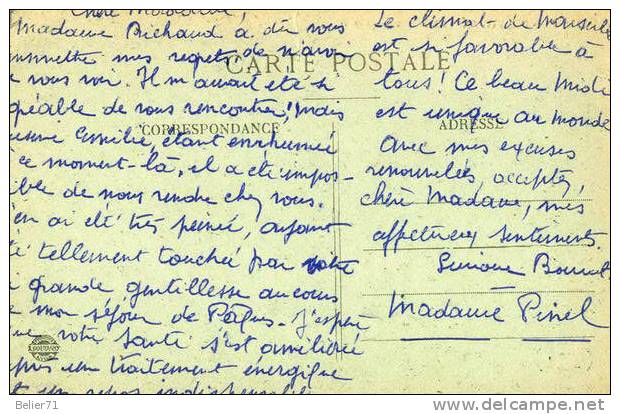 Chère Madame,
Madame Bichaud a dû vous
nsmettre mes regrets de n'avoi
vous voir. Il m'aurait été si
gréable de vous rencontrer! Mais
Emilie, étant enrhumée
ce moment-là, il a été impos-
ible de nous rendre chez vous.
en ai été très peinée, ayant
té tellement touchée par votre
grande gentillesse au cours
mon séjour de Pâques. J'espère
ue votre santé s'est améliorée
puis un traitement énergique
t un repos
Le climat de Marseille
est si favorable à
tous! Ce beau Midi
est unique au monde
Avec mes excuses
renouvelées, acceptez,
chère Madame, mes
affectueux sentiments.
Simone
Madame Pinel
CARTE POSTALE
CORRESPONDANCE
ADRESSE
Belier71
http://www.delcampe.net